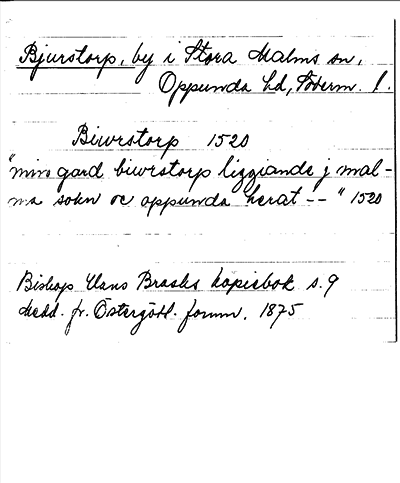 Bjurstorp, by i Stora Malms sn,
Oppunda hd, Söderm. l.
Biwrstorp 1520
"min gard biwrstorp liggiande j mal-
ma sokn oc oppunda herat -- " 1520
Biskop Hans Brasks kopiebok s. 9
Medd. fr. Östergötl. fornm. 1875